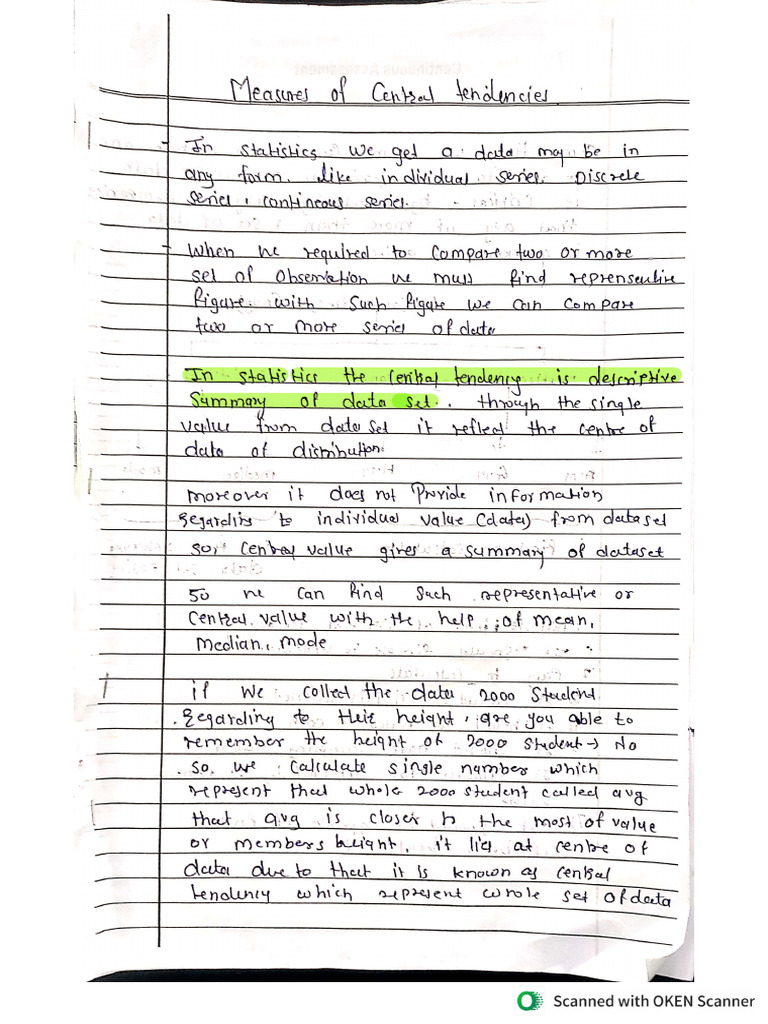 Measures of Central tendencies
- In statistics we get a data may be in
any form. like individual series. Discrete
series, contineous series.
- When we required to compare two or more
set of observation we must find reprensentive
figure with such figure we can compare
two or more series of data
In statistics the central tendency is descriptive
Summary of data set. through the single
value from data set it reflect the centre of
data of distribution.
moreover it does not Provide information
Regarding to individual value (data) from dataset
so, central value gives a summary of dataset
so we can find such representative or
central value with the help of mean,
median, mode
if we collect the data 2000 student
Regarding to their height, are you able to
remember the height of 2000 student → No
so we calculate single number which
represent that whole 2000 student called avg
that avg is closer to the most of value
or members height, it lies at centre of
data due to that it is known as central
tendency which represent whole set of data
Scanned with OKEN Scanner